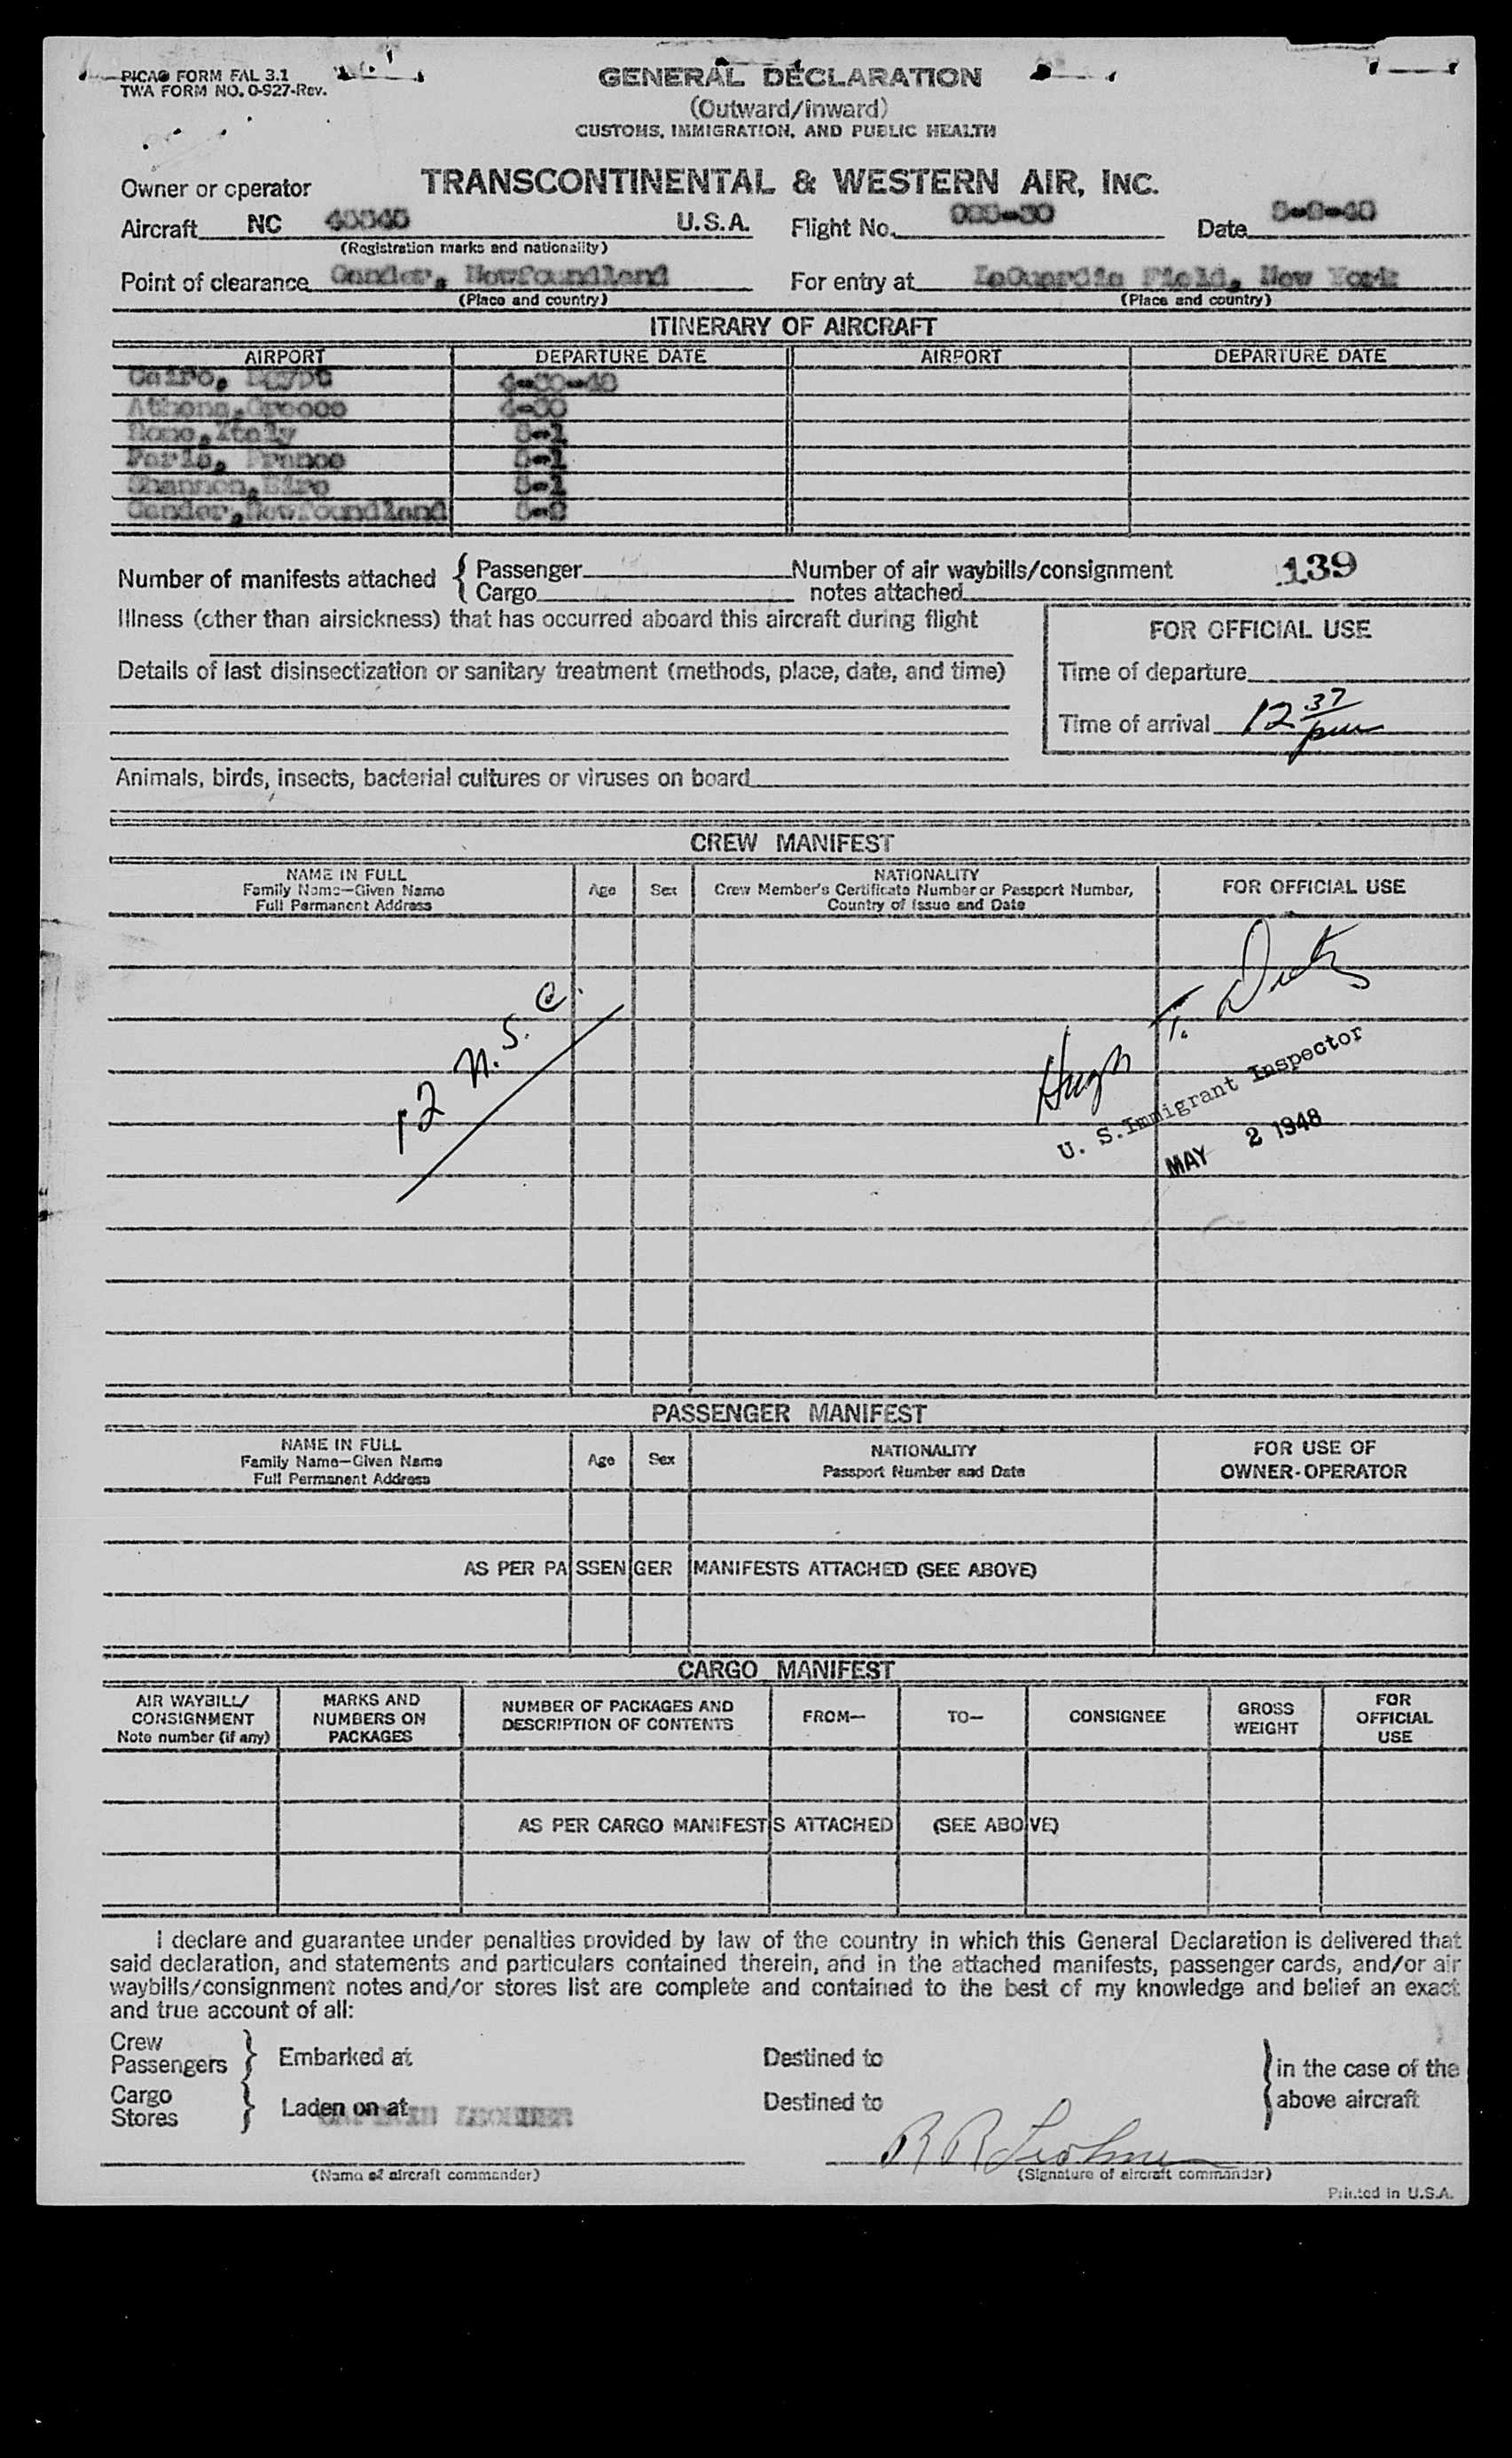 PICAO FORM FAL 3.1
TWA FORM NO. 0-927-Rev.
GENERAL DECLARATION
(Outward/inward)
CUSTOMS, IMMIGRATION, AND PUBLIC HEALTH
Owner or operator TRANSCONTINENTAL & WESTERN AIR, INC.
Aircraft NC U.S.A. Flight No. Date
(Registration marks and nationality)
Point of clearance Gander, Newfoundland For entry at LaGuardia Field, New York
(Place and country) (Place and country)
ITINERARY OF AIRCRAFT
AIRPORT DEPARTURE DATE AIRPORT DEPARTURE DATE
Cairo, Egypt 4-30-48
Athens,Greece 4-30
Rome,Italy 5-1
Paris, France 5-1
Shannon,Eire 5-1
Gander,Newfoundland 5-2
Number of manifests attached { Passenger Number of air waybills/consignment 139
Cargo notes attached
Illness (other than airsickness) that has occurred aboard this aircraft during flight
FOR OFFICIAL USE
Details of last disinsectization or sanitary treatment (methods, place, date, and time)
Time of departure
Time of arrival 12 37 pm
Animals, birds, insects, bacterial cultures or viruses on board
CREW MANIFEST
NAME IN FULL
Family Name—Given Name
Full Permanent Address
Age Sex
NATIONALITY
Crew Member's Certificate Number or Passport Number,
Country of Issue and Date
FOR OFFICIAL USE
12 N. S. C.
Hugh T.
U. S. Immigrant Inspector
MAY 2 1948
PASSENGER MANIFEST
NAME IN FULL
Family Name—Given Name
Full Permanent Address
Age Sex
NATIONALITY
Passport Number and Date
FOR USE OF
OWNER-OPERATOR
AS PER PASSENGER MANIFESTS ATTACHED (SEE ABOVE)
CARGO MANIFEST
AIR WAYBILL/
CONSIGNMENT
Note number (if any)
MARKS AND
NUMBERS ON
PACKAGES
NUMBER OF PACKAGES AND
DESCRIPTION OF CONTENTS
FROM—
TO—
CONSIGNEE
GROSS
WEIGHT
FOR
OFFICIAL
USE
AS PER CARGO MANIFESTS ATTACHED (SEE ABOVE)
I declare and guarantee under penalties provided by law of the country in which this General Declaration is delivered that
said declaration, and statements and particulars contained therein, and in the attached manifests, passenger cards, and/or air
waybills/consignment notes and/or stores list are complete and contained to the best of my knowledge and belief an exact
and true account of all:
Crew
Passengers } Embarked at Destined to } in the case of the
Cargo
Stores } Laden on at Destined to above aircraft
CAPTAIN
R R
(Name of aircraft commander) (Signature of aircraft commander)
Printed in U.S.A.